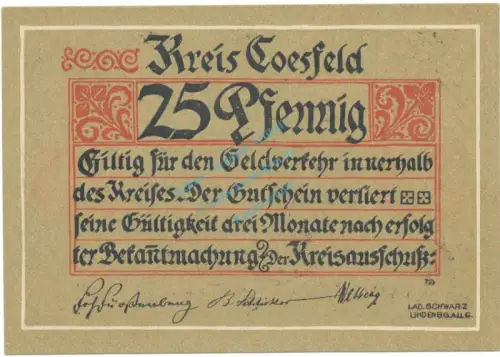 Kreis Coesfeld
25 Pfennig
Giltig für den Geldverkehr innerhalb
des Kreises. Der Gutschein verliert
seine Gültigkeit drei Monate nach erfolg
ter Bekan̄tmachung. Der Kreisausschuß:
LAD. SCHWARZ
LINDENBG. ALLG.